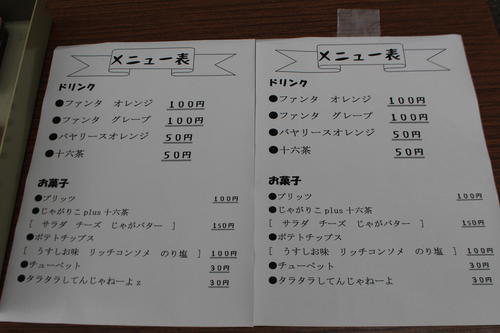 メニュー表
ドリンク
●ファンタ オレンジ 100円
●ファンタ グレープ 100円
●バヤリースオレンジ 50円
●十六茶 50円
お菓子
●プリッツ 100円
●じゃがりこplus十六茶
[ サラダ チーズ じゃがバター ] 150円
●ポテトチップス
[ うすしお味 リッチコンソメ のり塩 ] 100円
●チューペット 30円
●タラタラしてんじゃねーよz 30円
メニュー表
ドリンク
●ファンタ オレンジ 100円
●ファンタ グレープ 100円
●バヤリースオレンジ 50円
●十六茶 50円
お菓子
●プリッツ 100円
●じゃがりこplus十六茶
[ サラダ チーズ じゃがバター ] 150円
●ポテトチップス
[ うすしお味 リッチコンソメ のり塩 ] 100円
●チューペット 30円
●タラタラしてんじゃねーよ 30円